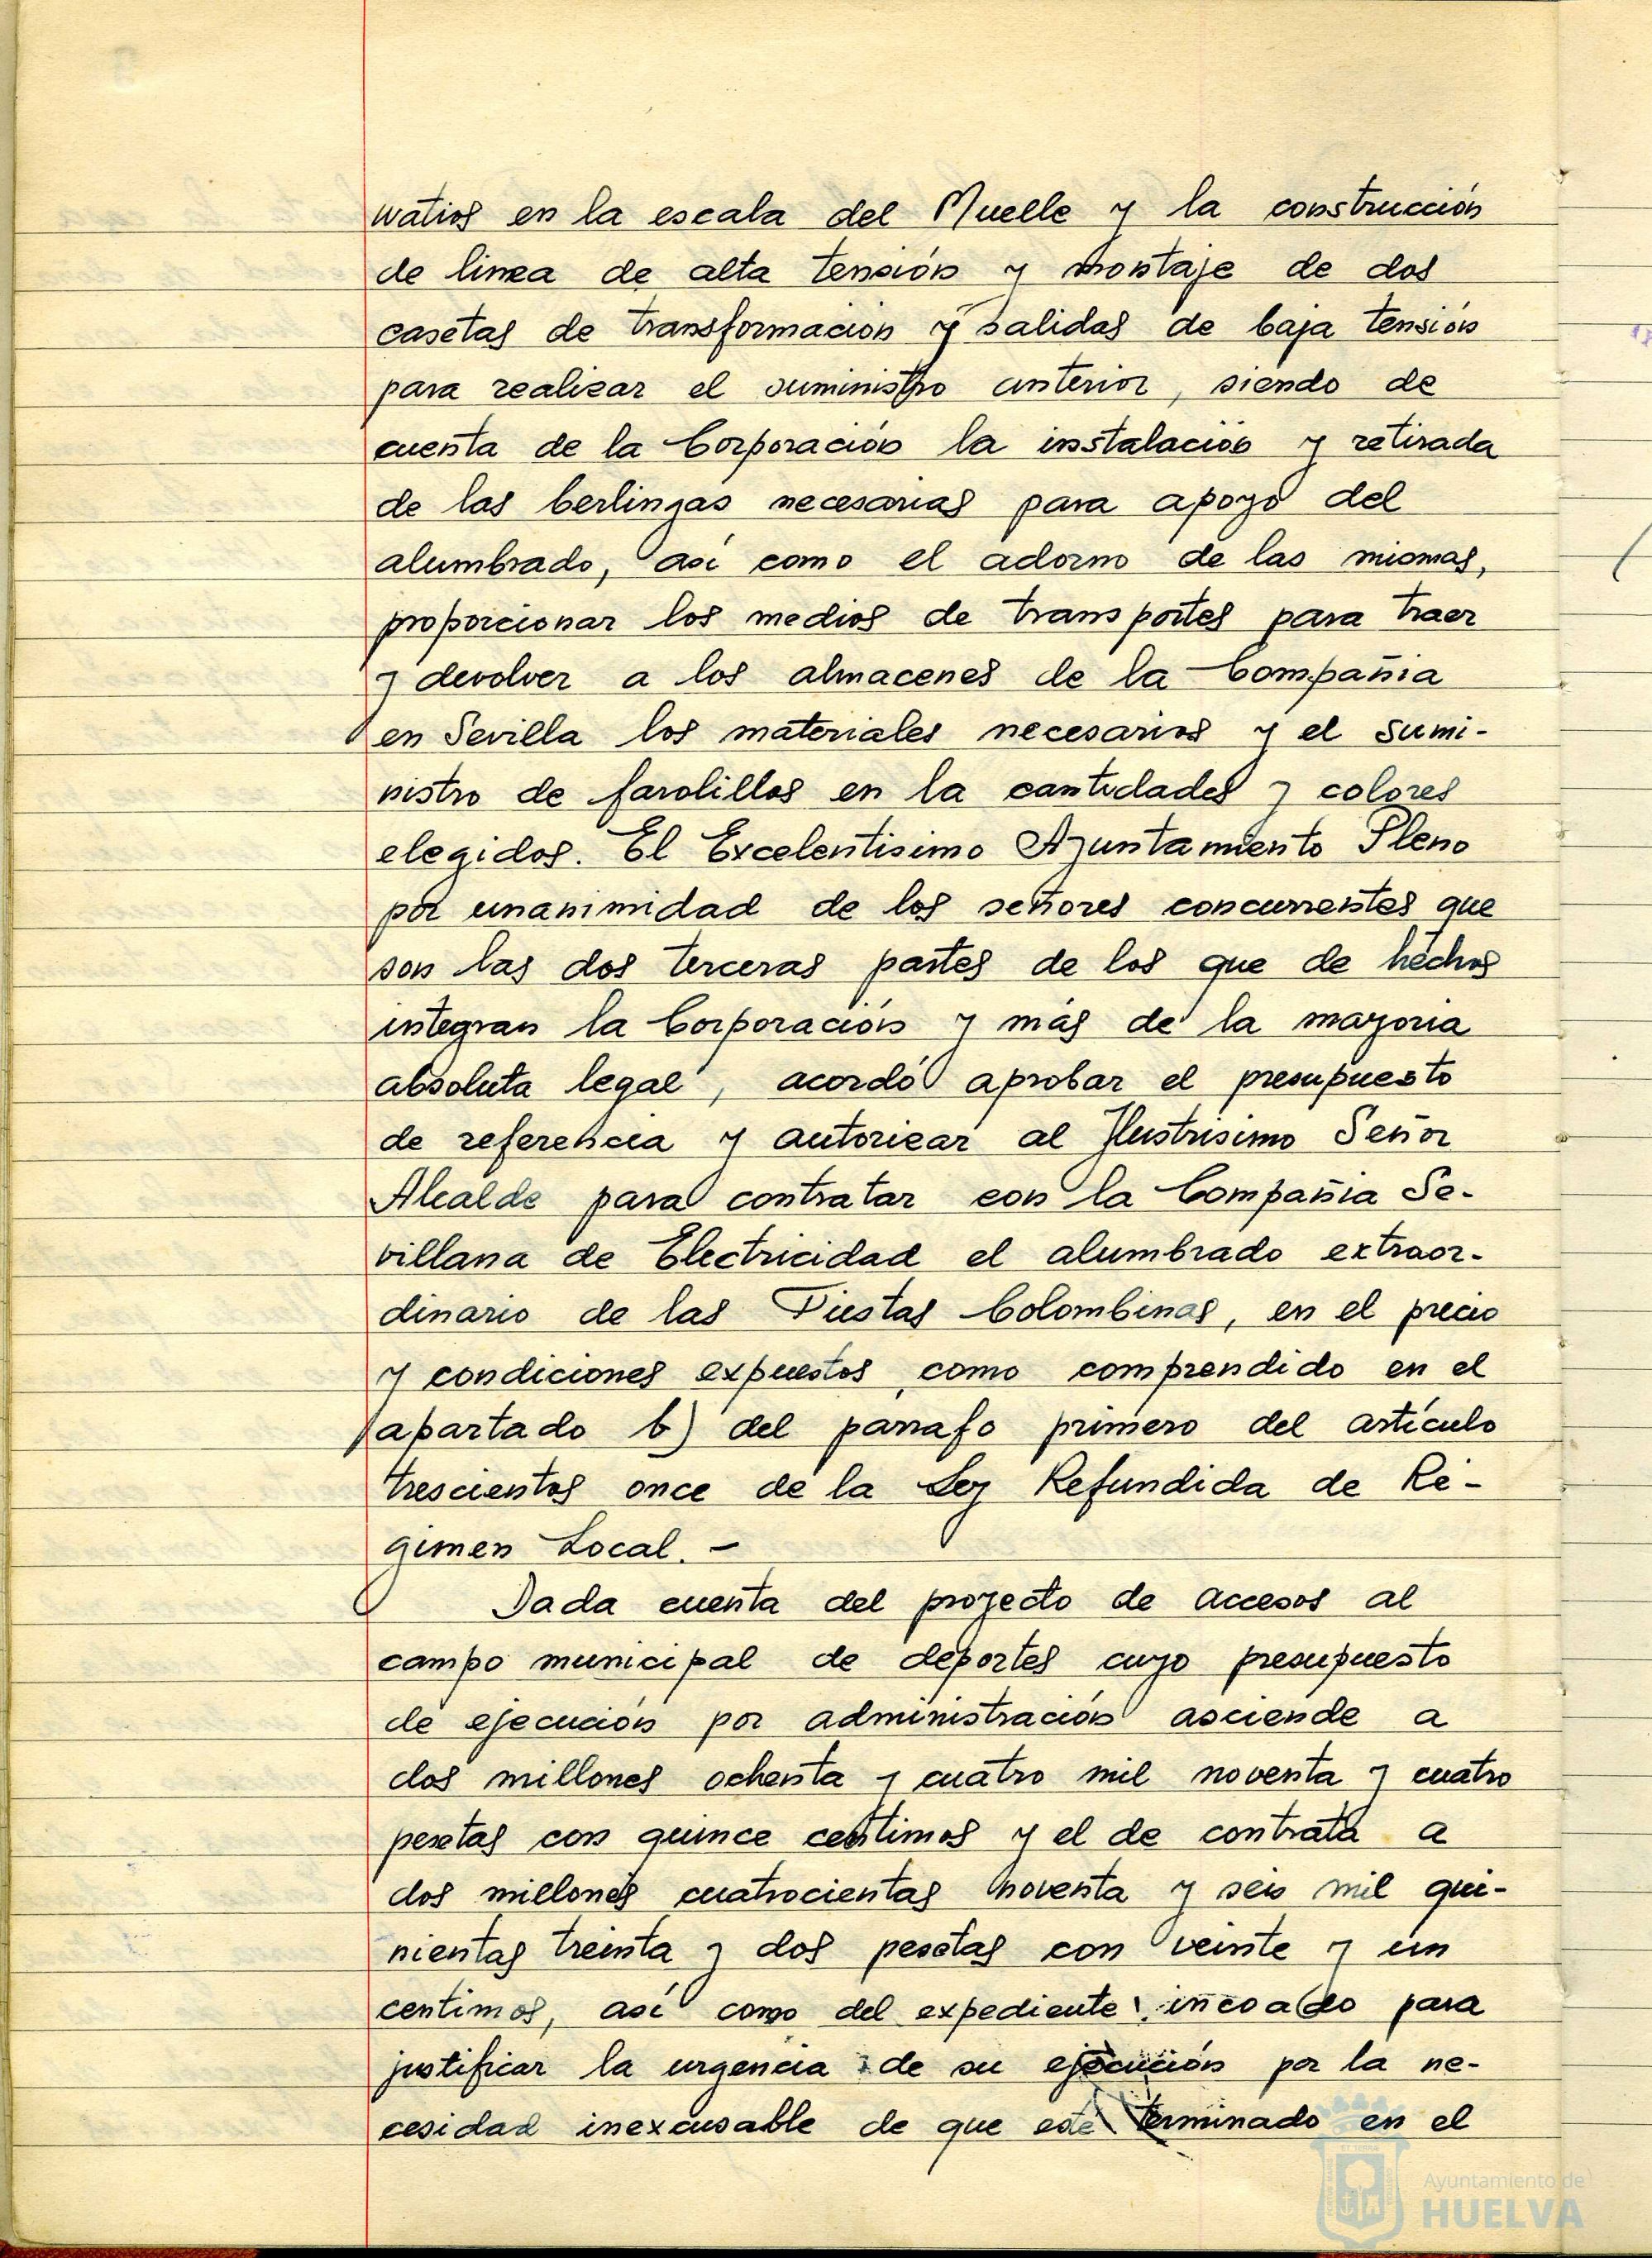 watios en la escala del Muelle y la construcción
de linea de alta tensión y montaje de dos
casetas de transformación y salidas de baja tensión
para realizar el suministro anterior, siendo de
cuenta de la Corporación la instalación y retirada
de las berlingas necesarias para apoyo del
alumbrado, así como el adorno de las mismas,
proporcionar los medios de transportes para traer
y devolver a los almacenes de la Compañia
en Sevilla los materiales necesarios y el sumi-
nistro de farolillos en la cantidades y colores
elegidos. El Excelentisimo Ayuntamiento Pleno
por unanimidad de los señores concurrentes que
son las dos terceras partes de los que de hechos
integran la Corporación y más de la mayoria
absoluta legal, acordó aprobar el presupuesto
de referencia y autorizar al Ilustrisimo Señor
Alcalde para contratar con la Compañia Se-
villana de Electricidad el alumbrado extraor-
dinario de las Fiestas Colombinas, en el precio
y condiciones expuestos, como comprendido en el
apartado b) del parrafo primero del artículo
trescientos once de la Ley Refundida de Ré-
gimen Local. -
Dada cuenta del proyecto de accesos al
campo municipal de deportes cuyo presupuesto
de ejecución por administración asciende a
dos millones ochenta y cuatro mil noventa y cuatro
pesetas con quince centimos y el de contrata a
dos millones cuatrocientas noventa y seis mil qui-
nientas treinta y dos pesetas con veinte y un
centimos, así como del expediente incoado para
justificar la urgencia de su ejecución por la ne-
cesidad inexcusable de que esté terminado en el
Ayuntamiento de
HUELVA